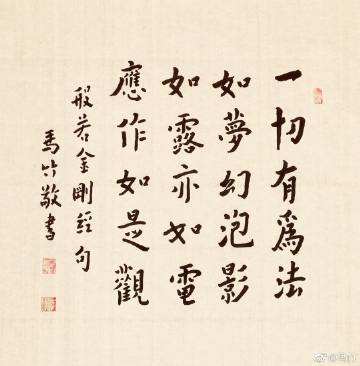 一切有為法
如夢幻泡影
如露亦如電
應作如是觀
般若金剛經句
馬竹敬書